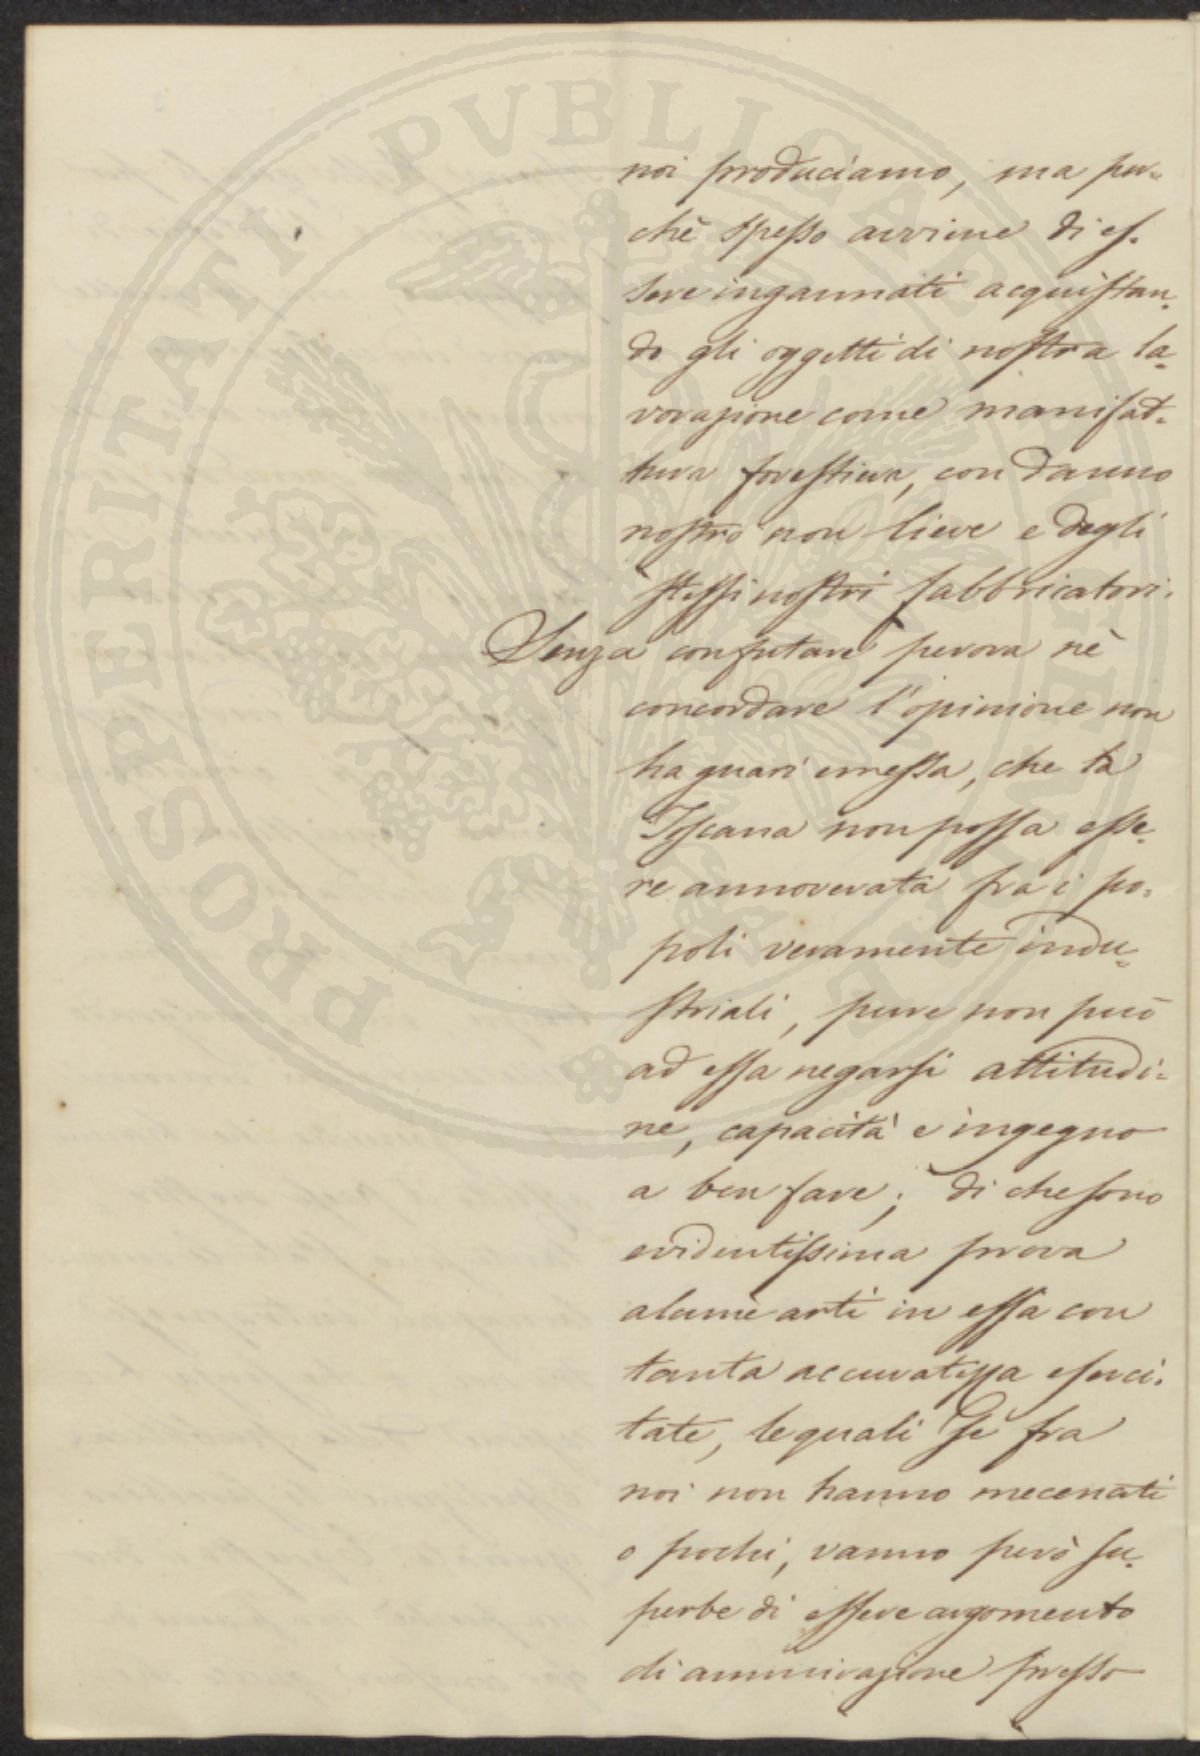 noi produciamo, ma per=
chè spesso avviene di es=
sere ingannati acquistan=
do gli oggetti di nostra la=
vorazione come manifat=
tura forestiera, con danno
nostro non lieve e degli
stessi nostri fabbricatori.
Senza confutare perora nè
concordare l'opinione non
ha guari emessa, che la
Toscana non possa esse=
re annoverata fra i po=
poli veramente indu=
striali, pure non può
ad essa negarsi attitudi=
ne, capacità e ingegno
a ben fare; di che sono
evidentissima prova
alcune arti in essa con
tanta accuratezza eserci=
tate, le quali se fra
noi non hanno mecenati
o pochi, vanno però su=
perbe di essere argomento
di ammirazione presso
PROSPERITATI PVBLICAE AVGENDAE